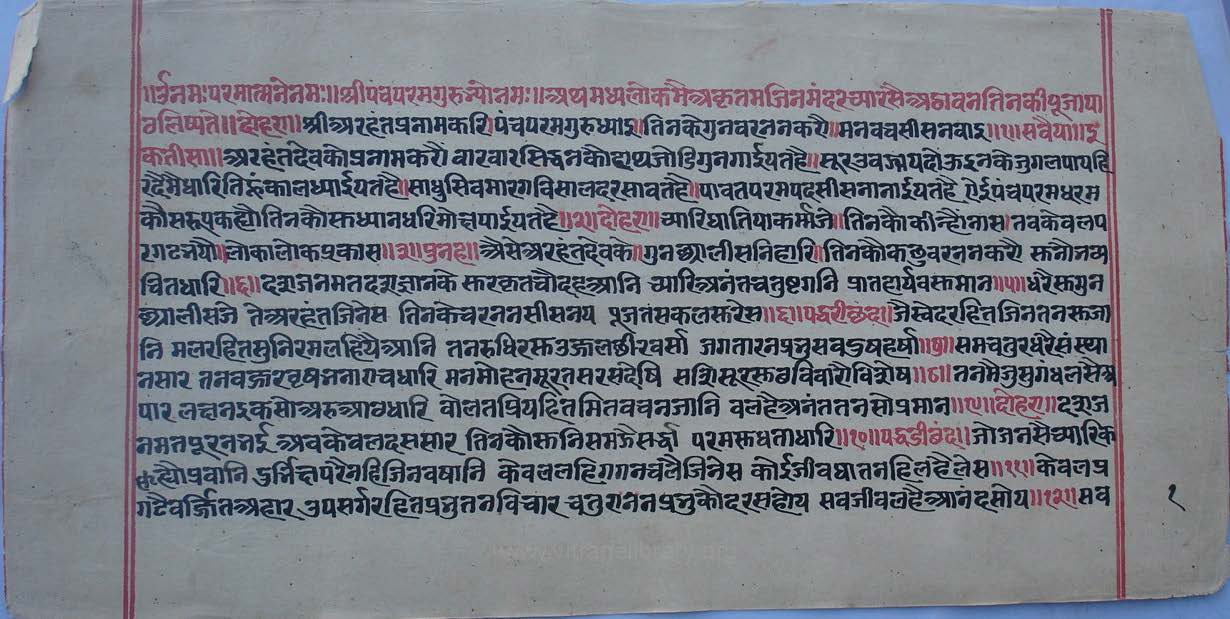 ॥र्उनमःपरमात्मनेनमः॥श्रीपंचपरमगुरुभ्योनमः॥अथमध्यलोकमैअकृतमजिनमंदरच्यारसैअठावनतिनकीपूजापा
ठलिष्यते॥दोहरा॥श्रीअरहंतप्रनामकरि।पंचपरमगुरुध्याइ।तिनकेगुनवरननकरौं।मनवचसीसनवाइ॥१॥सवैया॥इ
कतीसा॥अरहंतदेवकोप्रनामकरौं वारवारसिद्धनकौहाथजोडिगुनगाईयतहै॥सूरउवज्झायदौऊइनकेजुगलपायहि
रदैमैधारितिहूंकालध्याईयतहै॥साधुसिवमारगविसालदरसावतहै॥पावतपरमपदसीसनानाईयतहै ऐईपंचपरमधरम
कौसरुपकह्यौतिनकौसुध्यानधरिमोक्षपाईयतहै॥२॥दोहरा॥च्यारिघातियाकर्मजे॥तिनकौकीन्हौनास।तवकेवलप
रगटभयौ॥लोकालोकप्रकास॥३॥पुनहा॥औसेअरहंतदेवके॥गुनछ्यालीसनिहारि॥तिनकौकछुवरननकरौ सुनौभव्य
चितधारि॥४॥दशजनमतदशज्ञानके सुरकृतचौदहआनि च्यारिअनंतचतुष्टगनि प्रातहार्यवसुमान॥५॥धरैसुगुन
छ्यालीसजे तेअरहंतजिनेस तिनकेचरननसीसनय पूजतसकलसुरेस॥६॥पद्धरीछंद॥जैस्वेदरहितजिनतनसुजा
नि मलरहितसुनिरमलहियैआनि तनरुधिरसुउज्जलछीरवर्सा जगतारनप्रभुसवदुषहर्सा॥७॥समचतुरधरैसंस्था
नसार तनवज्जरवृषभनाराचधारि मनमोहनमूरतसरसदेषि ससिसूरसुछविवारौविशेष॥८॥तनमैजुसुगंधलसैअ
पार लछनइकसोअरुआठधारि वोलतप्रियहितमितवचनजानि वलहैअनंततनसोप्रमान॥९॥दोहरा॥दशज
नमतपूरनभई अवकेवलदससार तिनकौसुनिसमझैसर्द्धा परमसुधताधारि॥१०॥पद्धडीछंद॥जोजनसैच्यारिक
ह्यौप्रवानि दुर्भिक्षपरैनहिजिनवषानि केवललहिगगनचलैजिनेस कोईजीवघातनहिलहैलेस॥११॥केवलप्र
गटैवर्जितअहार उपसर्गरहितप्रभुतनविचार चतुराननप्रभुकौदरसहोय सवजीवलहैआनंदसोय॥१२॥सव
१